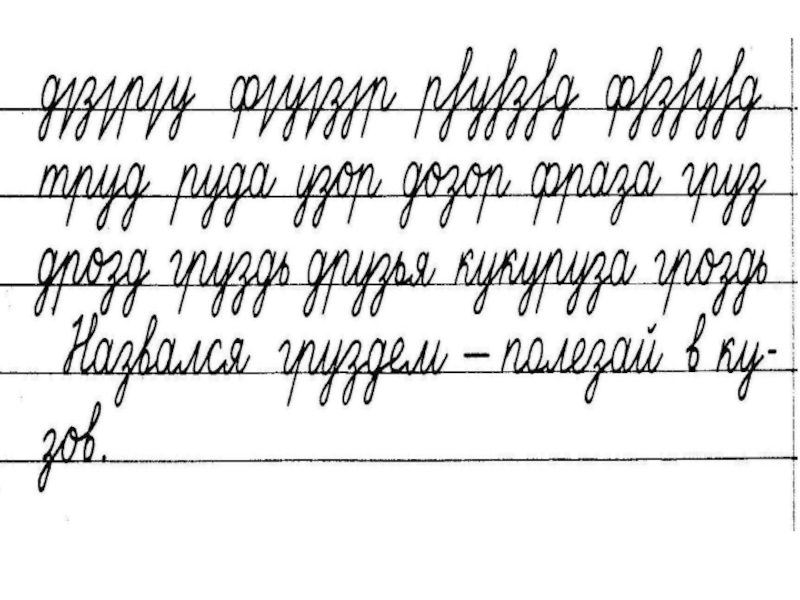 труд руда узор дозор фраза груз
дрозд груздь друзья кукуруза гроздь
Назвался груздем – полезай в ку-
зов.